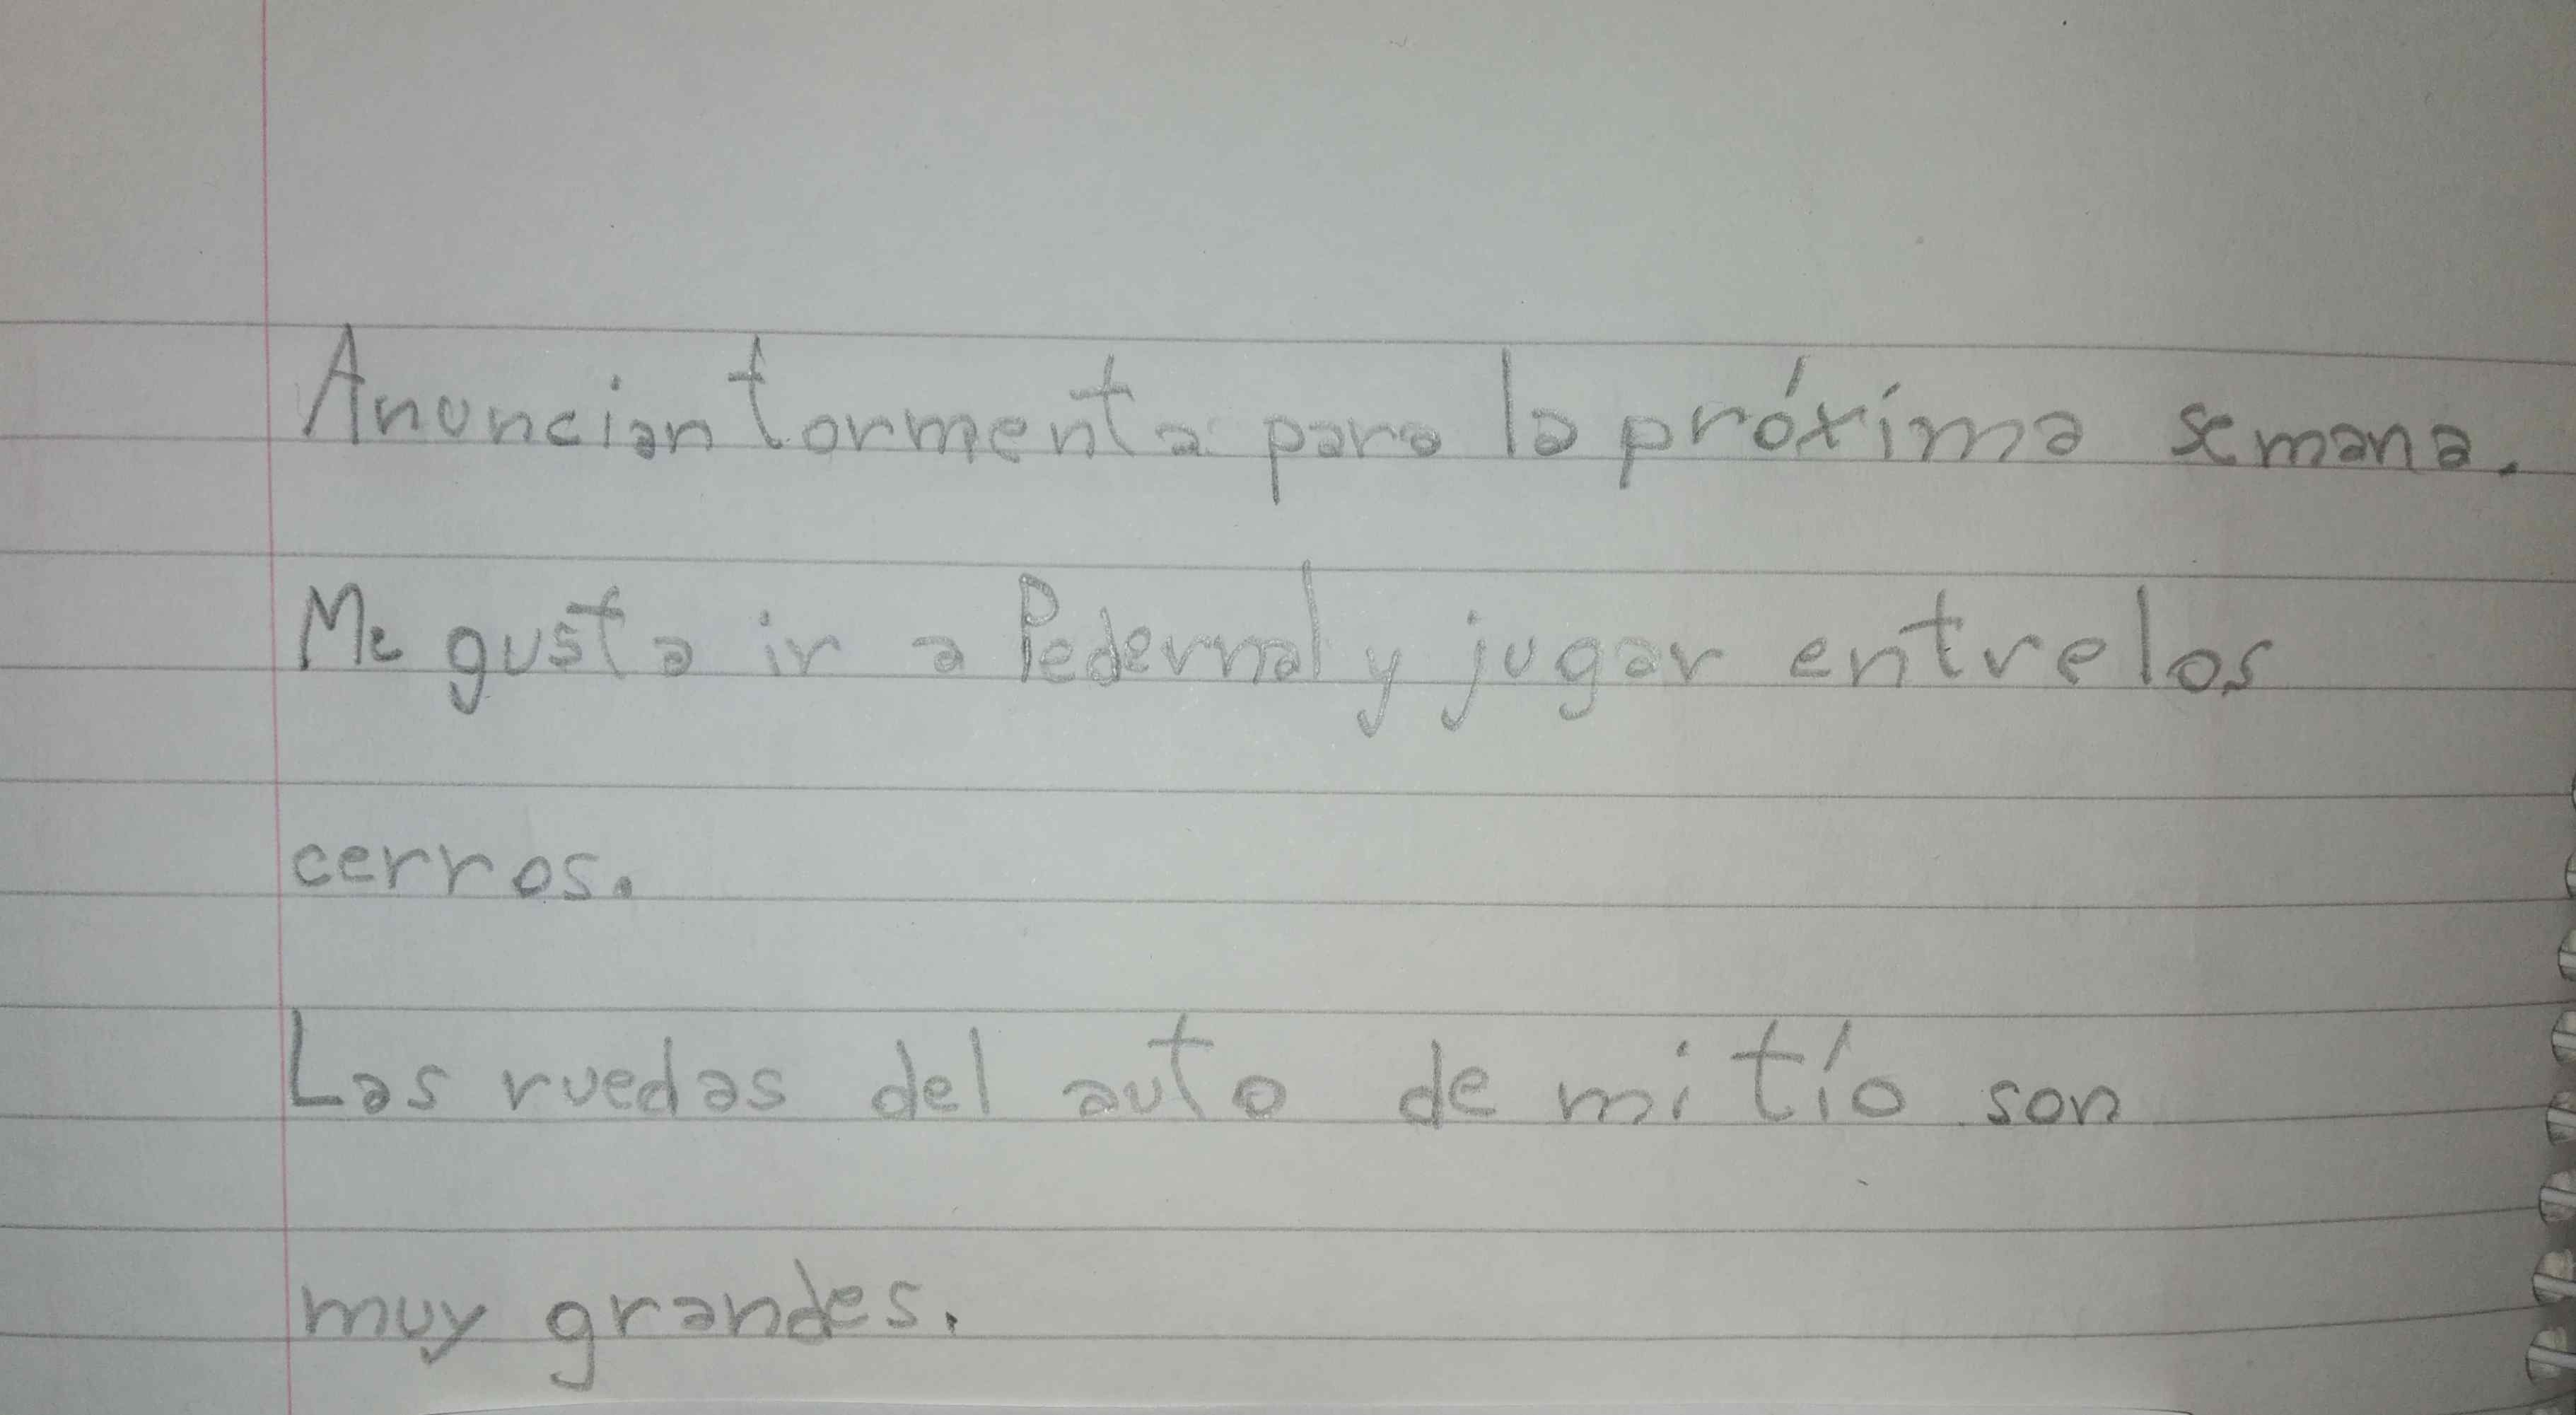 Anuncian tormenta para la próxima semana.
Me gusta ir a Pedernal y jugar entre los
cerros.
Las ruedas del auto de mi tío son
muy grandes.